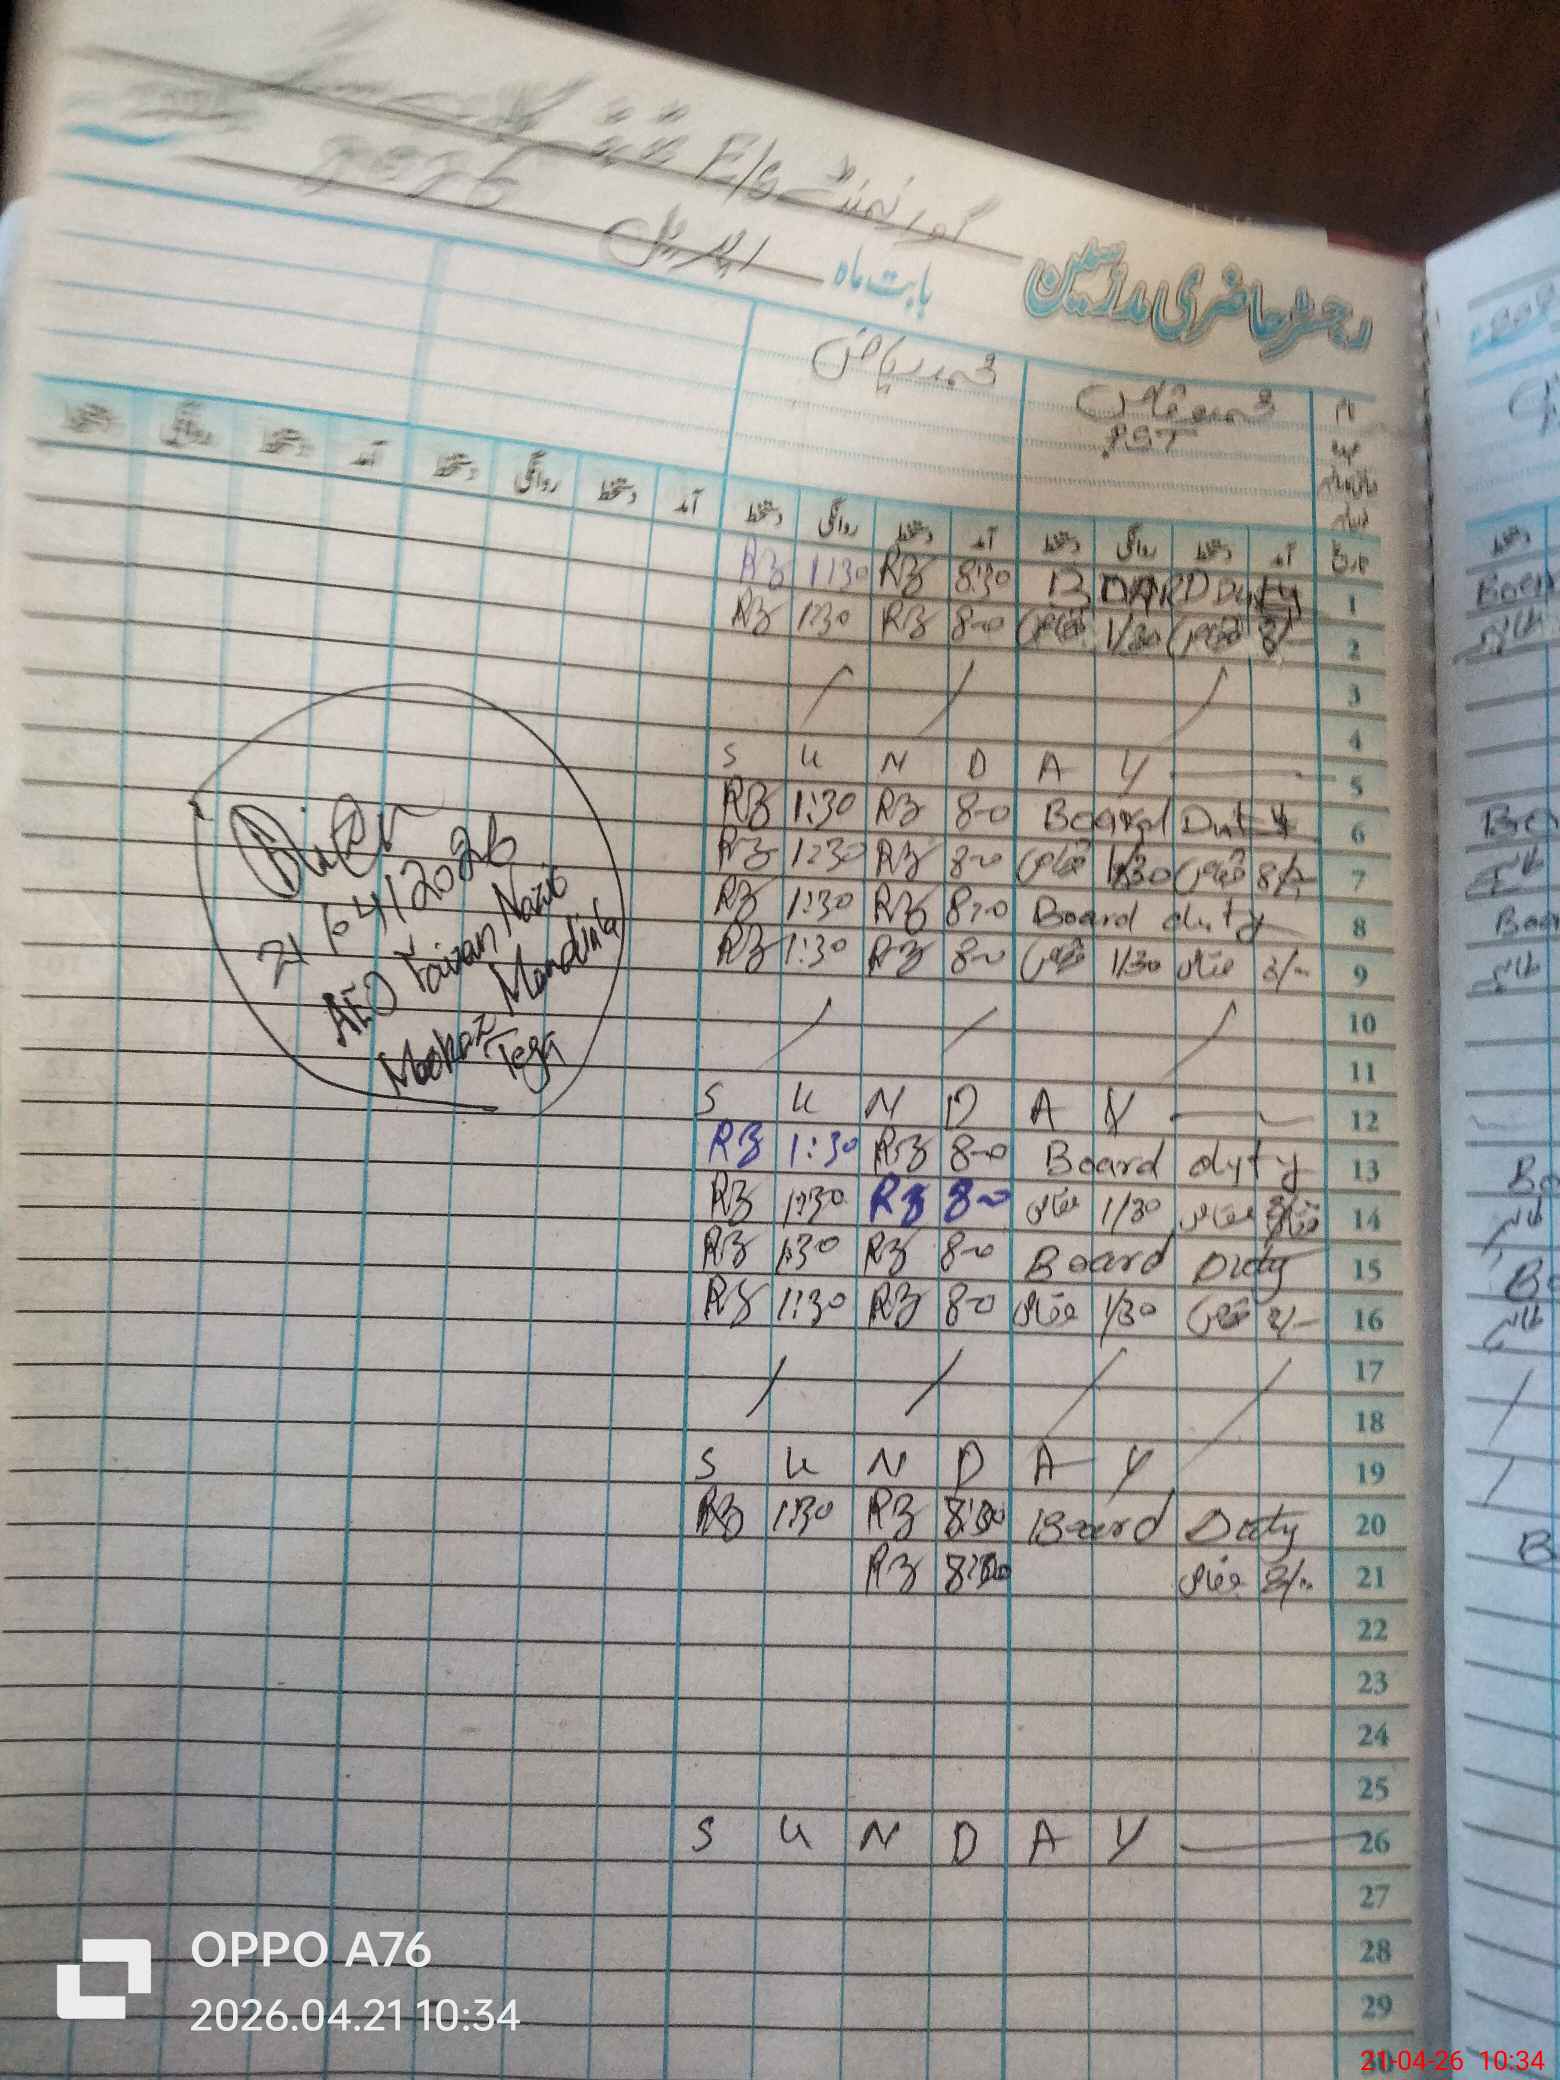 گورنمنٹ E/S
رجسٹر حاضری مدرسین بابت ماہ اپریل 2026
نام محمد عباس محمد ریاض
عہدہ PST
تاریخ آمد دستخط روانگی دستخط آمد دستخط روانگی دستخط آمد دستخط روانگی دستخط آمد دستخط روانگی دستخط
1 BOARD Duty 8:30 RZ 1:30 RZ
2 8/- عباس 1/30 عباس 8-0 RZ 1:30 RZ
3
4
S U N D A Y 5
6 Board Duty 8-0 RZ 1:30 RZ
7 8/- عباس 1/30 عباس 8-0 RZ 1:30 RZ
8 Board duty 8:0 RZ 1:30 RZ
9 8/- عباس 1/30 عباس 8-0 RZ 1:30 RZ
10
11
S U N D A Y 12
13 Board duty 8-0 RZ 1:30 RZ
14 عباس 1/30 عباس 8-0 RZ 1:30 RZ
15 Board Duty 8-0 RZ 1:30 RZ
16 8/- عباس 1/30 عباس 8-0 RZ 1:30 RZ
17
18
S U N D A Y 19
20 Board Duty 8:00 RZ 1:30 RZ
21 8/- عباس 8:00 RZ
22
23
24
25
S U N D A Y 26
27
28
29
30
21/04/2026
AEO Faizan Nazir
Markaz Mandiala
Tega
OPPO A76
2026.04.21 10:34
21-04-26 10:34